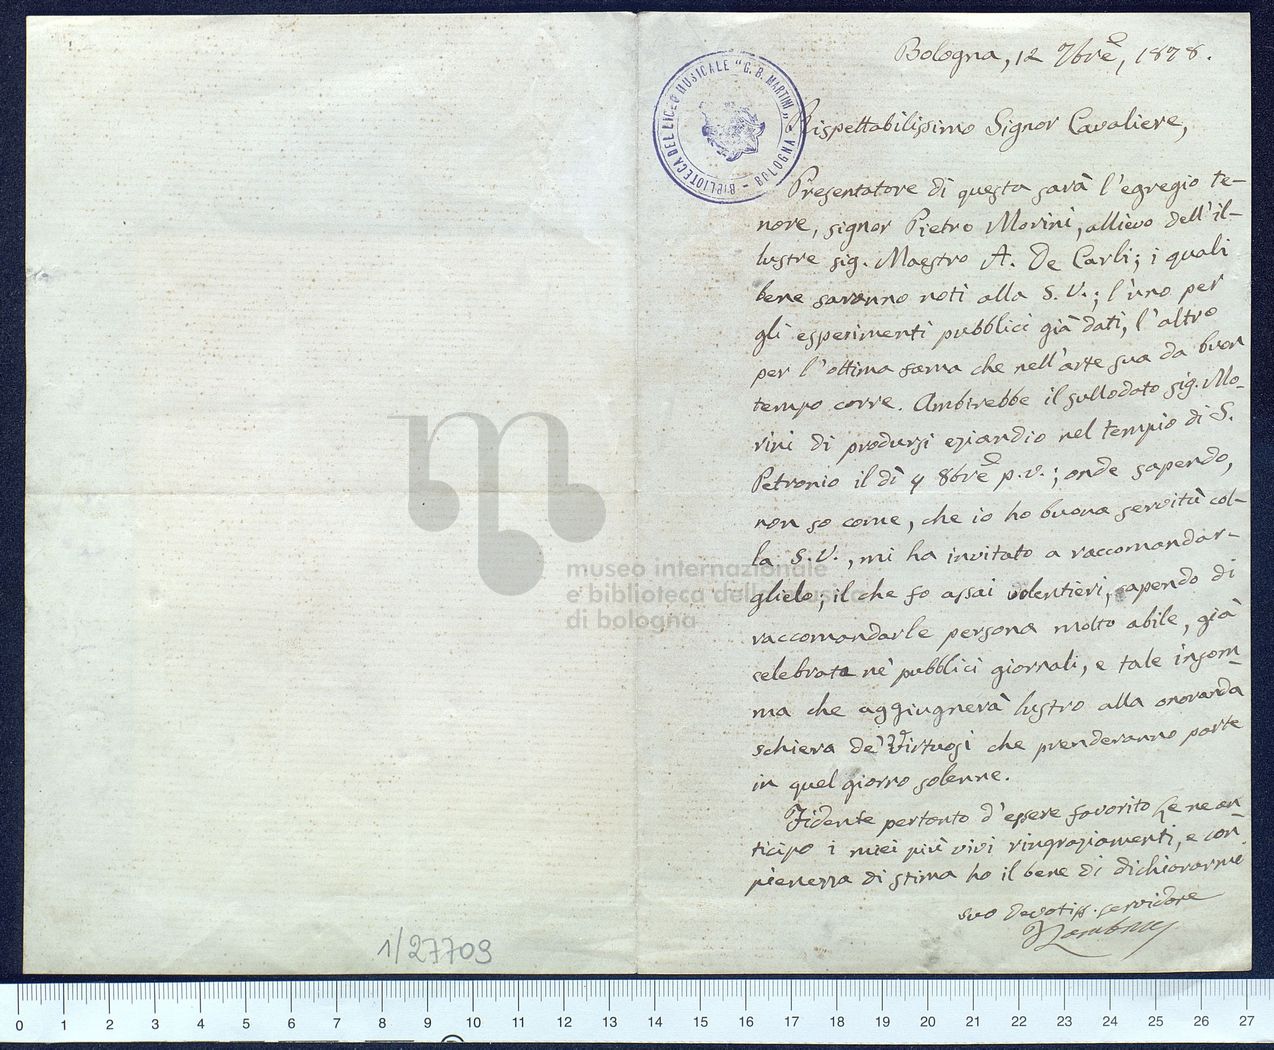 Bologna, 12 7bre, 1878.
BIBLIOTECA DEL LICEO MUSICALE "G. B. MARTINI" - BOLOGNA -
Rispettabilissimo Signor Cavaliere,
Presentatore di questa sarà l'egregio te-
nore, signor Pietro Morini, allievo dell'il-
lustre sig. Maestro A. De Carli; i quali
bene saranno noti alla S. V.; l'uno per
gli esperimenti pubblici già dati, l'altro
per l'ottima fama che nell'arte sua da buon
tempo corre. Ambirebbe il sullodato sig. Mo-
rini di prodursi eziandio nel tempio di S.
Petronio il dì 4 8bre p.v.; onde sapendo,
non so come, che io ho buona servitù col-
la S. V., mi ha invitato a raccomandar-
glielo; il che fo assai volentieri, sapendo di
raccomandarle persona molto abile, già
celebrata ne' pubblici giornali, e tale insom-
ma che aggiugnerà lustro alla onoranda
schiera de' Virtuosi che prenderanno parte
in quel giorno solenne.
Fidente pertanto d'essere favorito Le ne an
ticipo i miei più vivi ringraziamenti, e con
pienezza di stima ho il bene di dichiararmi
suo devotiss. servidore
FZambrini
museo internazionale
e biblioteca della musica
di bologna
1/27709
0 1 2 3 4 5 6 7 8 9 10 11 12 13 14 15 16 17 18 19 20 21 22 23 24 25 26 27